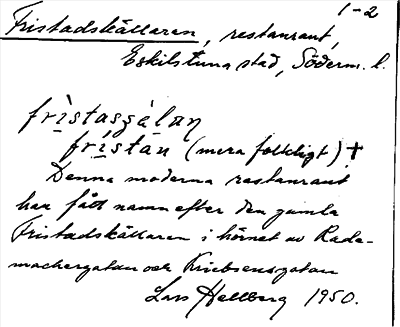 1-2
Fristadskällaren, restaurant,
Eskilstuna stad, Söderm. l.
frìstasgálaṇ
frístán (mera folkligt) †
Denna moderna restaurant
har fått namn efter den gamla
Fristadskällaren i hörnet av Rade-
machergatan och Kriebsensgatan
Lars Hellberg 1950.